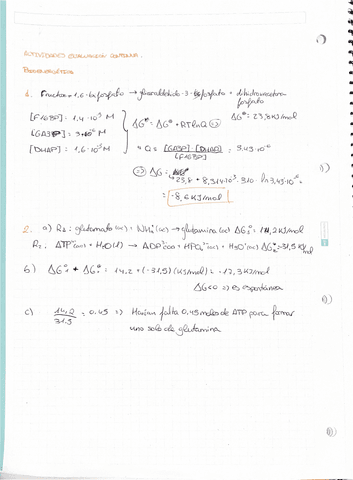 ACTIVIDADES EVALUACIÓN CONTINUA.
BIOENERGÉTICA
1. Fructosa-1,6-bisfosfato → gliceraldehído-3-fosfato + dihidroxiacetona fosfato
[F16BP] = 1,4·10⁻⁵ M
ΔG = ΔG° + RTlnQ
ΔG° = 23,8 KJ/mol
[GA3P] = 3·10⁻⁶ M
Q = [GA3P]·[DHAP] / [F16BP] = 3.43·10⁻⁶
[DHAP] = 1,6·10⁻⁵ M
ΔG =
23,8 + 8,314·10⁻³ · 310 · ln 3,43·10⁻⁶ =
-8,6 KJ/mol
2. a) R₁: glutamato (ac) + NH₄⁺ (ac) → glutamina (ac) ΔG₁° = 14,2 KJ/mol
R₂: ATP (ac) + H₂O (l) → ADP (ac) + HPO₄²⁻ (ac) + H₃O⁺ (ac) ΔG₂° = -31,5 KJ/mol
b) ΔG₁° + ΔG₂° = 14,2 + (-31,5) (KJ/mol) = -17,3 KJ/mol
ΔG<0 => es espontánea
c) 14,2 / 31.5 = 0.45 => Harían falta 0,45 moles de ATP para formar
uno solo de glutamina